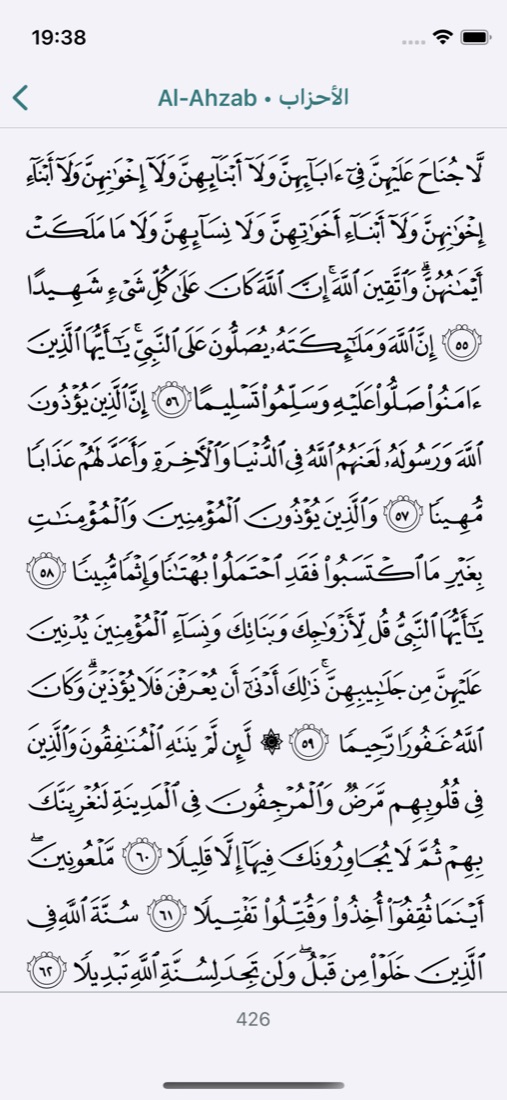 19:38
Al-Ahzab • الأحزاب
لَّا جُنَاحَ عَلَيْهِنَّ فِىٓ ءَابَآئِهِنَّ وَلَآ أَبْنَآئِهِنَّ وَلَآ إِخْوَٰنِهِنَّ وَلَآ أَبْنَآءِ
إِخْوَٰنِهِنَّ وَلَآ أَبْنَآءِ أَخَوَٰتِهِنَّ وَلَا نِسَآئِهِنَّ وَلَا مَا مَلَكَتْ
أَيْمَٰنُهُنَّۗ وَٱتَّقِينَ ٱللَّهَۚ إِنَّ ٱللَّهَ كَانَ عَلَىٰ كُلِّ شَىْءٍ شَهِيدًا
٥٥ إِنَّ ٱللَّهَ وَمَلَٰٓئِكَتَهُۥ يُصَلُّونَ عَلَى ٱلنَّبِىِّۚ يَٰٓأَيُّهَا ٱلَّذِينَ
ءَامَنُوا۟ صَلُّوا۟ عَلَيْهِ وَسَلِّمُوا۟ تَسْلِيمًا ٥٦ إِنَّ ٱلَّذِينَ يُؤْذُونَ
ٱللَّهَ وَرَسُولَهُۥ لَعَنَهُمُ ٱللَّهُ فِى ٱلدُّنْيَا وَٱلْءَاخِرَةِ وَأَعَدَّ لَهُمْ عَذَابًا
مُّهِينًا ٥٧ وَٱلَّذِينَ يُؤْذُونَ ٱلْمُؤْمِنِينَ وَٱلْمُؤْمِنَٰتِ
بِغَيْرِ مَا ٱكْتَسَبُوا۟ فَقَدِ ٱحْتَمَلُوا۟ بُهْتَٰنًا وَإِثْمًا مُّبِينًا ٥٨
يَٰٓأَيُّهَا ٱلنَّبِىُّ قُل لِّأَزْوَٰجِكَ وَبَنَاتِكَ وَنِسَآءِ ٱلْمُؤْمِنِينَ يُدْنِينَ
عَلَيْهِنَّ مِن جَلَٰبِيبِهِنَّۚ ذَٰلِكَ أَدْنَىٰٓ أَن يُعْرَفْنَ فَلَا يُؤْذَيْنَۗ وَكَانَ
ٱللَّهُ غَفُورًا رَّحِيمًا ٥٩ ۞ لَّئِن لَّمْ يَنتَهِ ٱلْمُنَٰفِقُونَ وَٱلَّذِينَ
فِى قُلُوبِهِم مَّرَضٌ وَٱلْمُرْجِفُونَ فِى ٱلْمَدِينَةِ لَنُغْرِيَنَّكَ
بِهِمْ ثُمَّ لَا يُجَاوِرُونَكَ فِيهَآ إِلَّا قَلِيلًا ٦٠ مَّلْعُونِينَۖ
أَيْنَمَا ثُقِفُوٓا۟ أُخِذُوا۟ وَقُتِّلُوا۟ تَقْتِيلًا ٦١ سُنَّةَ ٱللَّهِ فِى
ٱلَّذِينَ خَلَوْا۟ مِن قَبْلُۖ وَلَن تَجِدَ لِسُنَّةِ ٱللَّهِ تَبْدِيلًا ٦٢
426